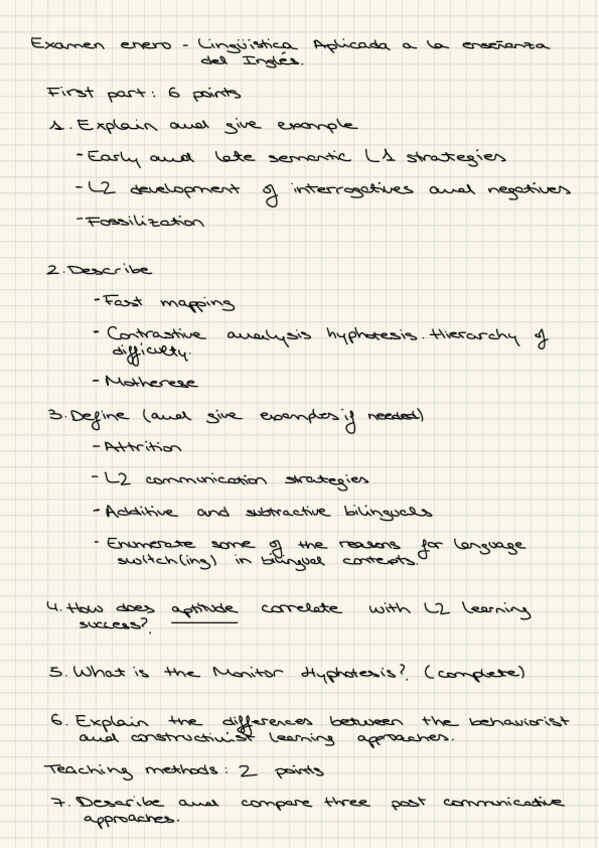 Examen enero - Lingüística Aplicada a la enseñanza
del Inglés.
First part: 6 points
1. Explain and give example
- Early and late semantic L1 strategies
- L2 development of interrogatives and negatives
- Fossilization
2. Describe
- Fast mapping
- Contrastive analysis hyphotesis. Hierarchy of
difficulty.
- Motherese
3. Define (and give examples if needed)
- Attrition
- L2 communication strategies
- Additive and subtractive bilinguals
- Enumerate some of the reasons for language
switch(ing) in bilingual contexts.
4. How does aptitude correlate with L2 learning
success?
5. What is the Monitor Hyphotesis? (complete)
6. Explain the differences between the behaviorist
and constructivist learning approaches.
Teaching methods: 2 points
7. Describe and compare three post communicative
approaches.